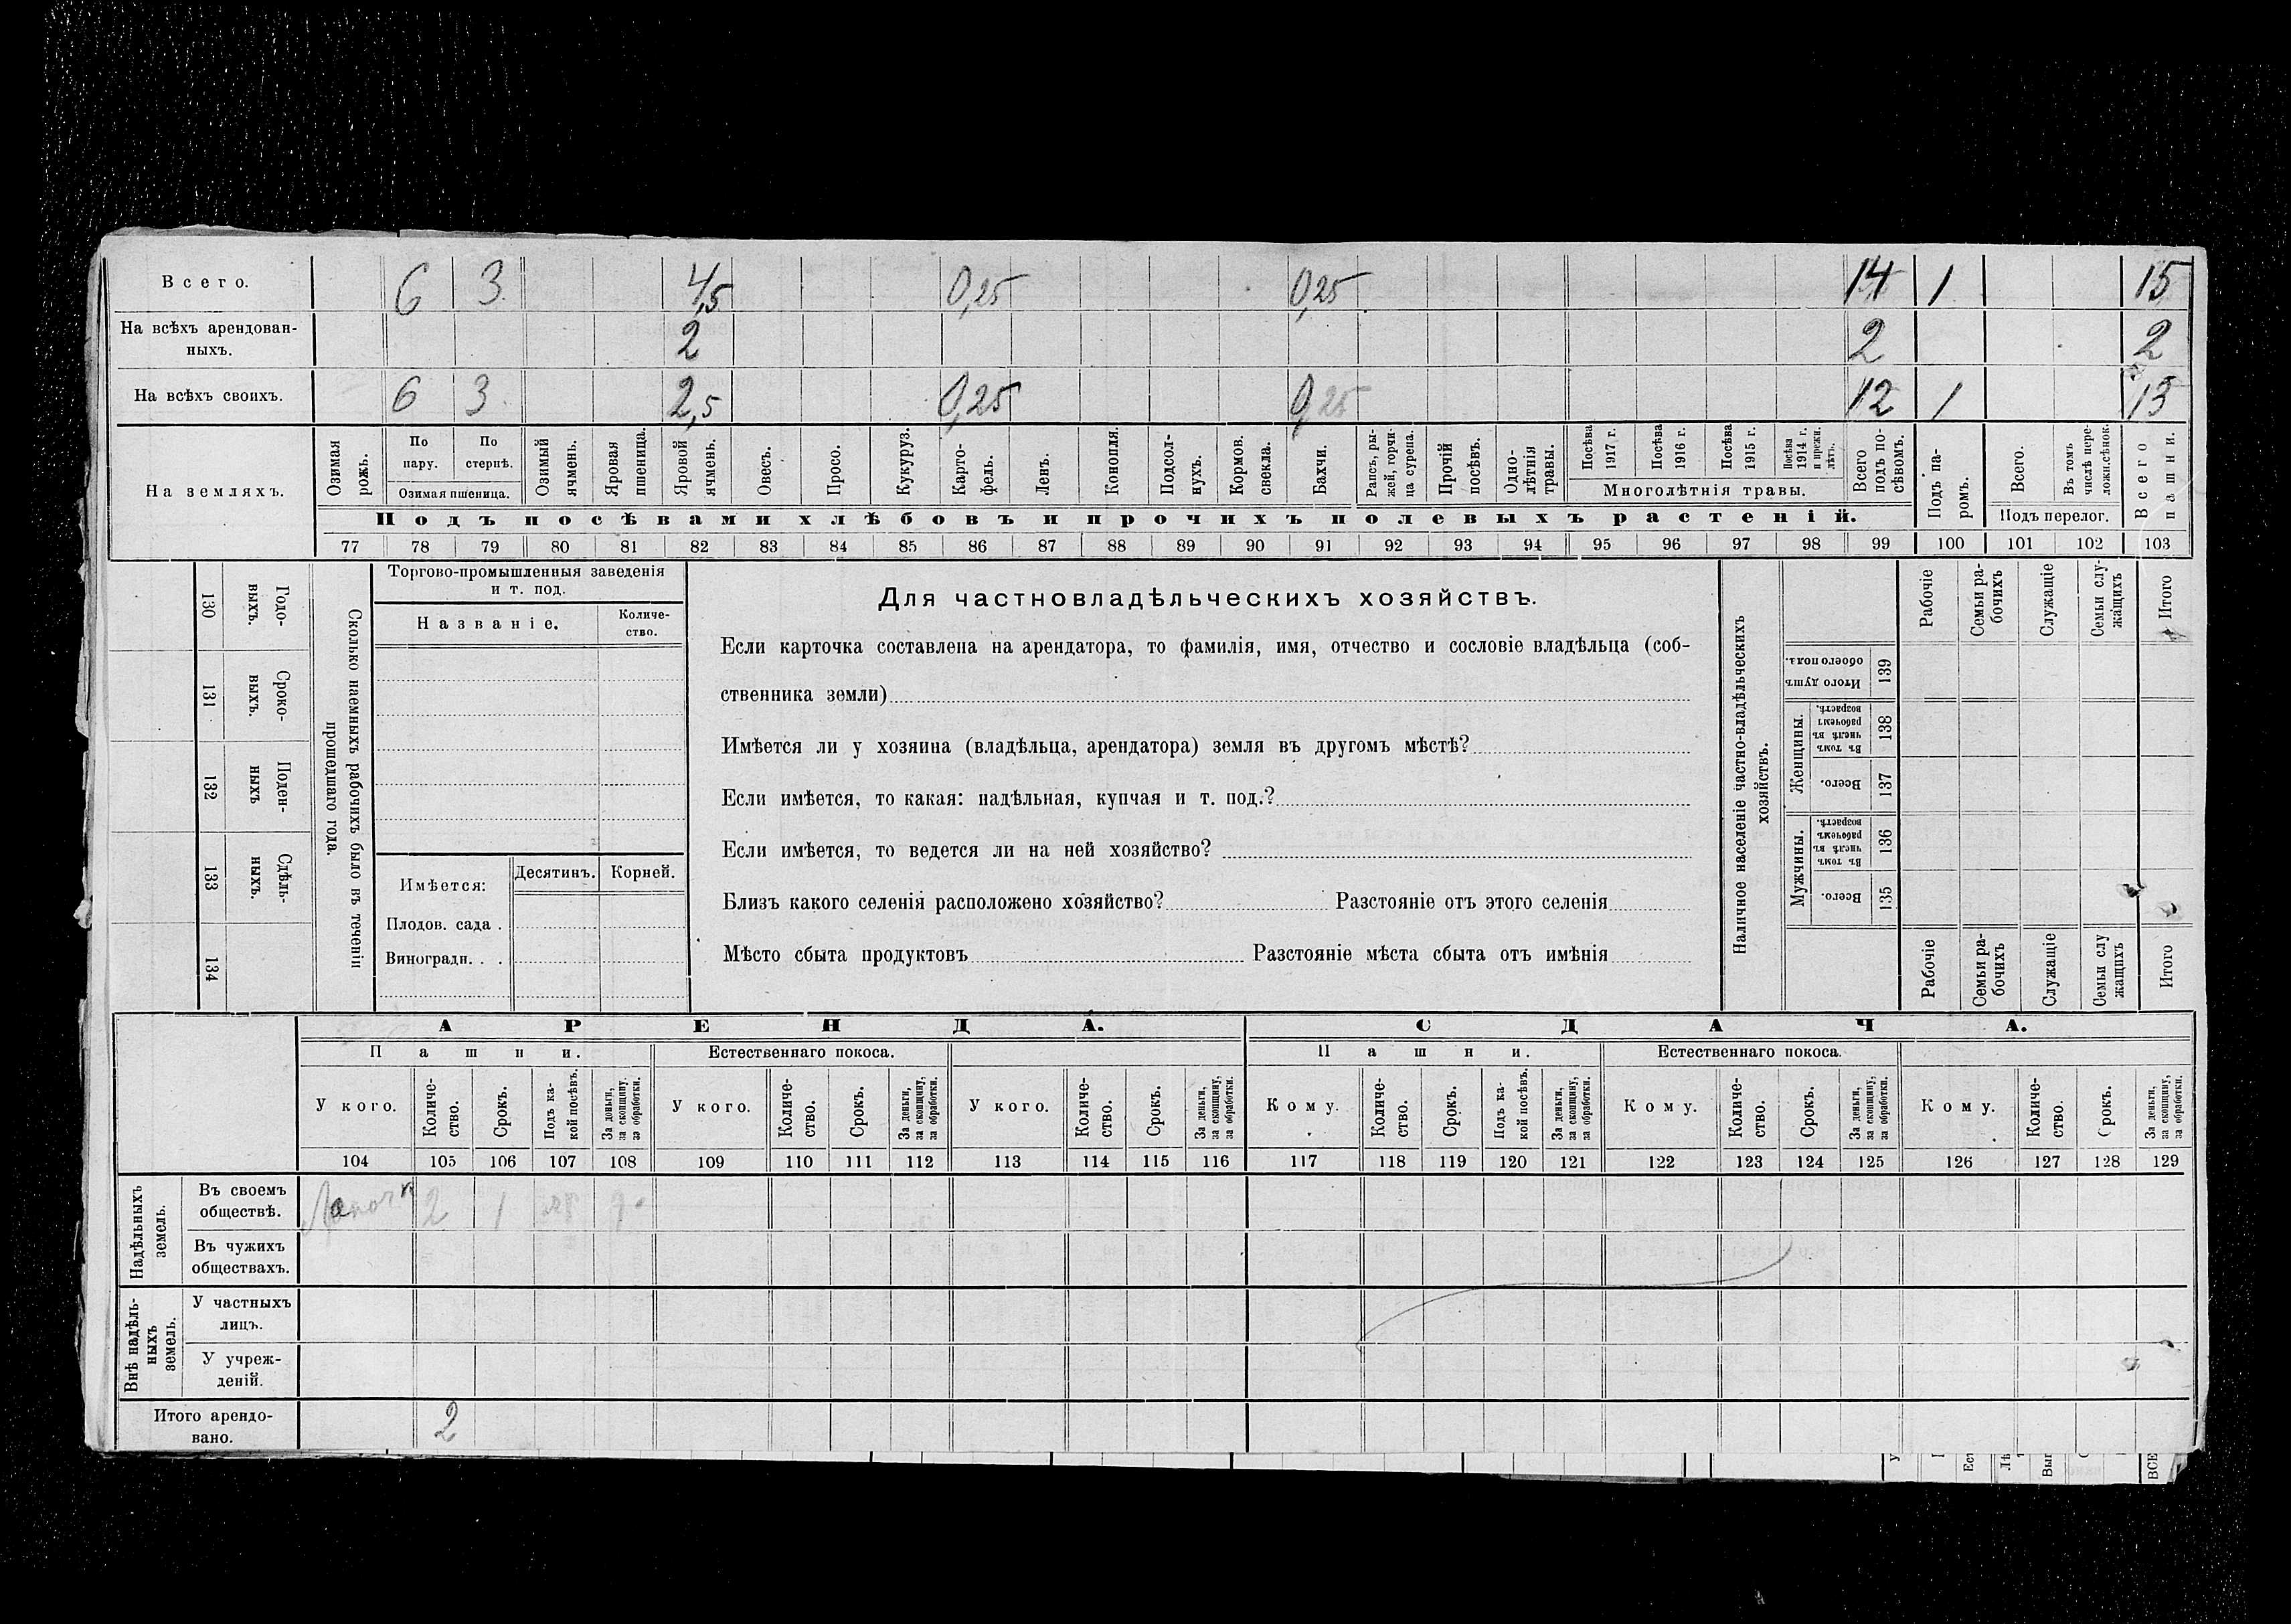 Всего. 6 3 4,5 0,25 0,25 14 1 15
На всѣхъ арендован-
ныхъ. 2 2 2
На всѣхъ своихъ. 6 3 2,5 0,25 0,25 12 1 13
На земляхъ.
Озимая рожь.
По пару.
По стернѣ.
Озимая пшеница.
Озимый ячмень.
Яровая пшеница.
Яровой ячмень.
Овесъ.
Просо.
Кукуруз.
Карто-
фель.
Ленъ.
Конопля.
Подсол-
нухъ.
Кормов. свекла.
Бахчи.
Рапсъ, ры-
жей, горчи-
ца сурепа.
Прочій посѣвъ.
Одно-
лѣтнія травы.
Посѣва 1917 г.
Посѣва 1916 г.
Посѣва 1915 г.
Посѣва 1914 г. и прежн. лѣтъ.
Многолѣтнія травы.
Всего подъ по-
сѣвомъ.
Подъ па-
ромъ.
Всего.
Въ томъ числѣ пере-
ложн.сѣнок.
Подъ перелог.
Всего пашни.
Подъ посѣвами хлѣбовъ и прочихъ полевыхъ растеній.
77 78 79 80 81 82 83 84 85 86 87 88 89 90 91 92 93 94 95 96 97 98 99 100 101 102 103
130 Годо-
ныхъ.
131 Сроко-
выхъ.
132 Поден-
ныхъ
133 Сдѣль-
ныхъ.
134
Сколько наемныхъ рабочихъ было въ теченіи
прошедшаго года.
Торгово-промышленныя заведенія
и т. под.
Названіе.
Количе-
ство.
Имѣется:
Десятинъ. Корней.
Плодов. сада .
Виноградн. . .
Для частновладѣльческихъ хозяйствъ.
Если карточка составлена на арендатора, то фамилія, имя, отчество и сословіе владѣльца (соб-
ственника земли)
Имѣется ли у хозяина (владѣльца, арендатора) земля въ другомъ мѣстѣ?
Если имѣется, то какая: надѣльная, купчая и т. под.?
Если имѣется, то ведется ли на ней хозяйство?
Близъ какого селенія расположено хозяйство? Разстояніе отъ этого селенія
Мѣсто сбыта продуктовъ Разстояніе мѣста сбыта отъ имѣнія
Наличное населеніе частно-владѣльческихъ
хозяйствъ.
Итого душъ обоего пола. 139
Женщины.
Въ томъ числѣ въ рабочемъ возрастѣ. 138
Всего. 137
Мужчины.
Въ томъ числѣ въ рабочемъ возрастѣ. 136
Всего. 135
Рабочіе
Семьи ра-
бочихъ
Служащіе
Семьи слу-
жащихъ
Итого
Рабочіе
Семьи ра-
бочихъ
Служащіе
Семьи слу
жащихъ
Итого
АРЕНДА. СДАЧА.
Пашни. Естественнаго покоса. Пашни. Естественнаго покоса.
У кого.
Количе-
ство.
Срокъ.
Подъ ка-
кой посѣвъ.
За деньги,
за скопщину.
за обработки.
У кого.
Количе-
ство.
Срокъ.
За деньги,
за скопщину,
за обработки.
У кого.
Количе-
ство.
Срокъ.
За деньги,
за скопщину,
за обработки.
Кому.
Количе-
ство.
Срокъ.
Подъ ка-
кой посѣвъ.
За деньги,
за скопщину,
за обработки.
Кому.
Количе-
ство.
Срокъ.
За деньги,
за скопщину,
за обработки.
Кому.
Количе-
ство.
Срокъ.
За деньги,
за скопщину,
за обработки.
104 105 106 107 108 109 110 111 112 113 114 115 116 117 118 119 120 121 122 123 124 125 126 127 128 129
Надѣльныхъ
земель.
Въ своемъ
обществѣ. 2 1
Въ чужихъ
обществахъ.
Внѣ надѣль-
ныхъ
земель.
У частныхъ
лицъ.
У учреж-
деній.
Итого арендо-
вано. 2